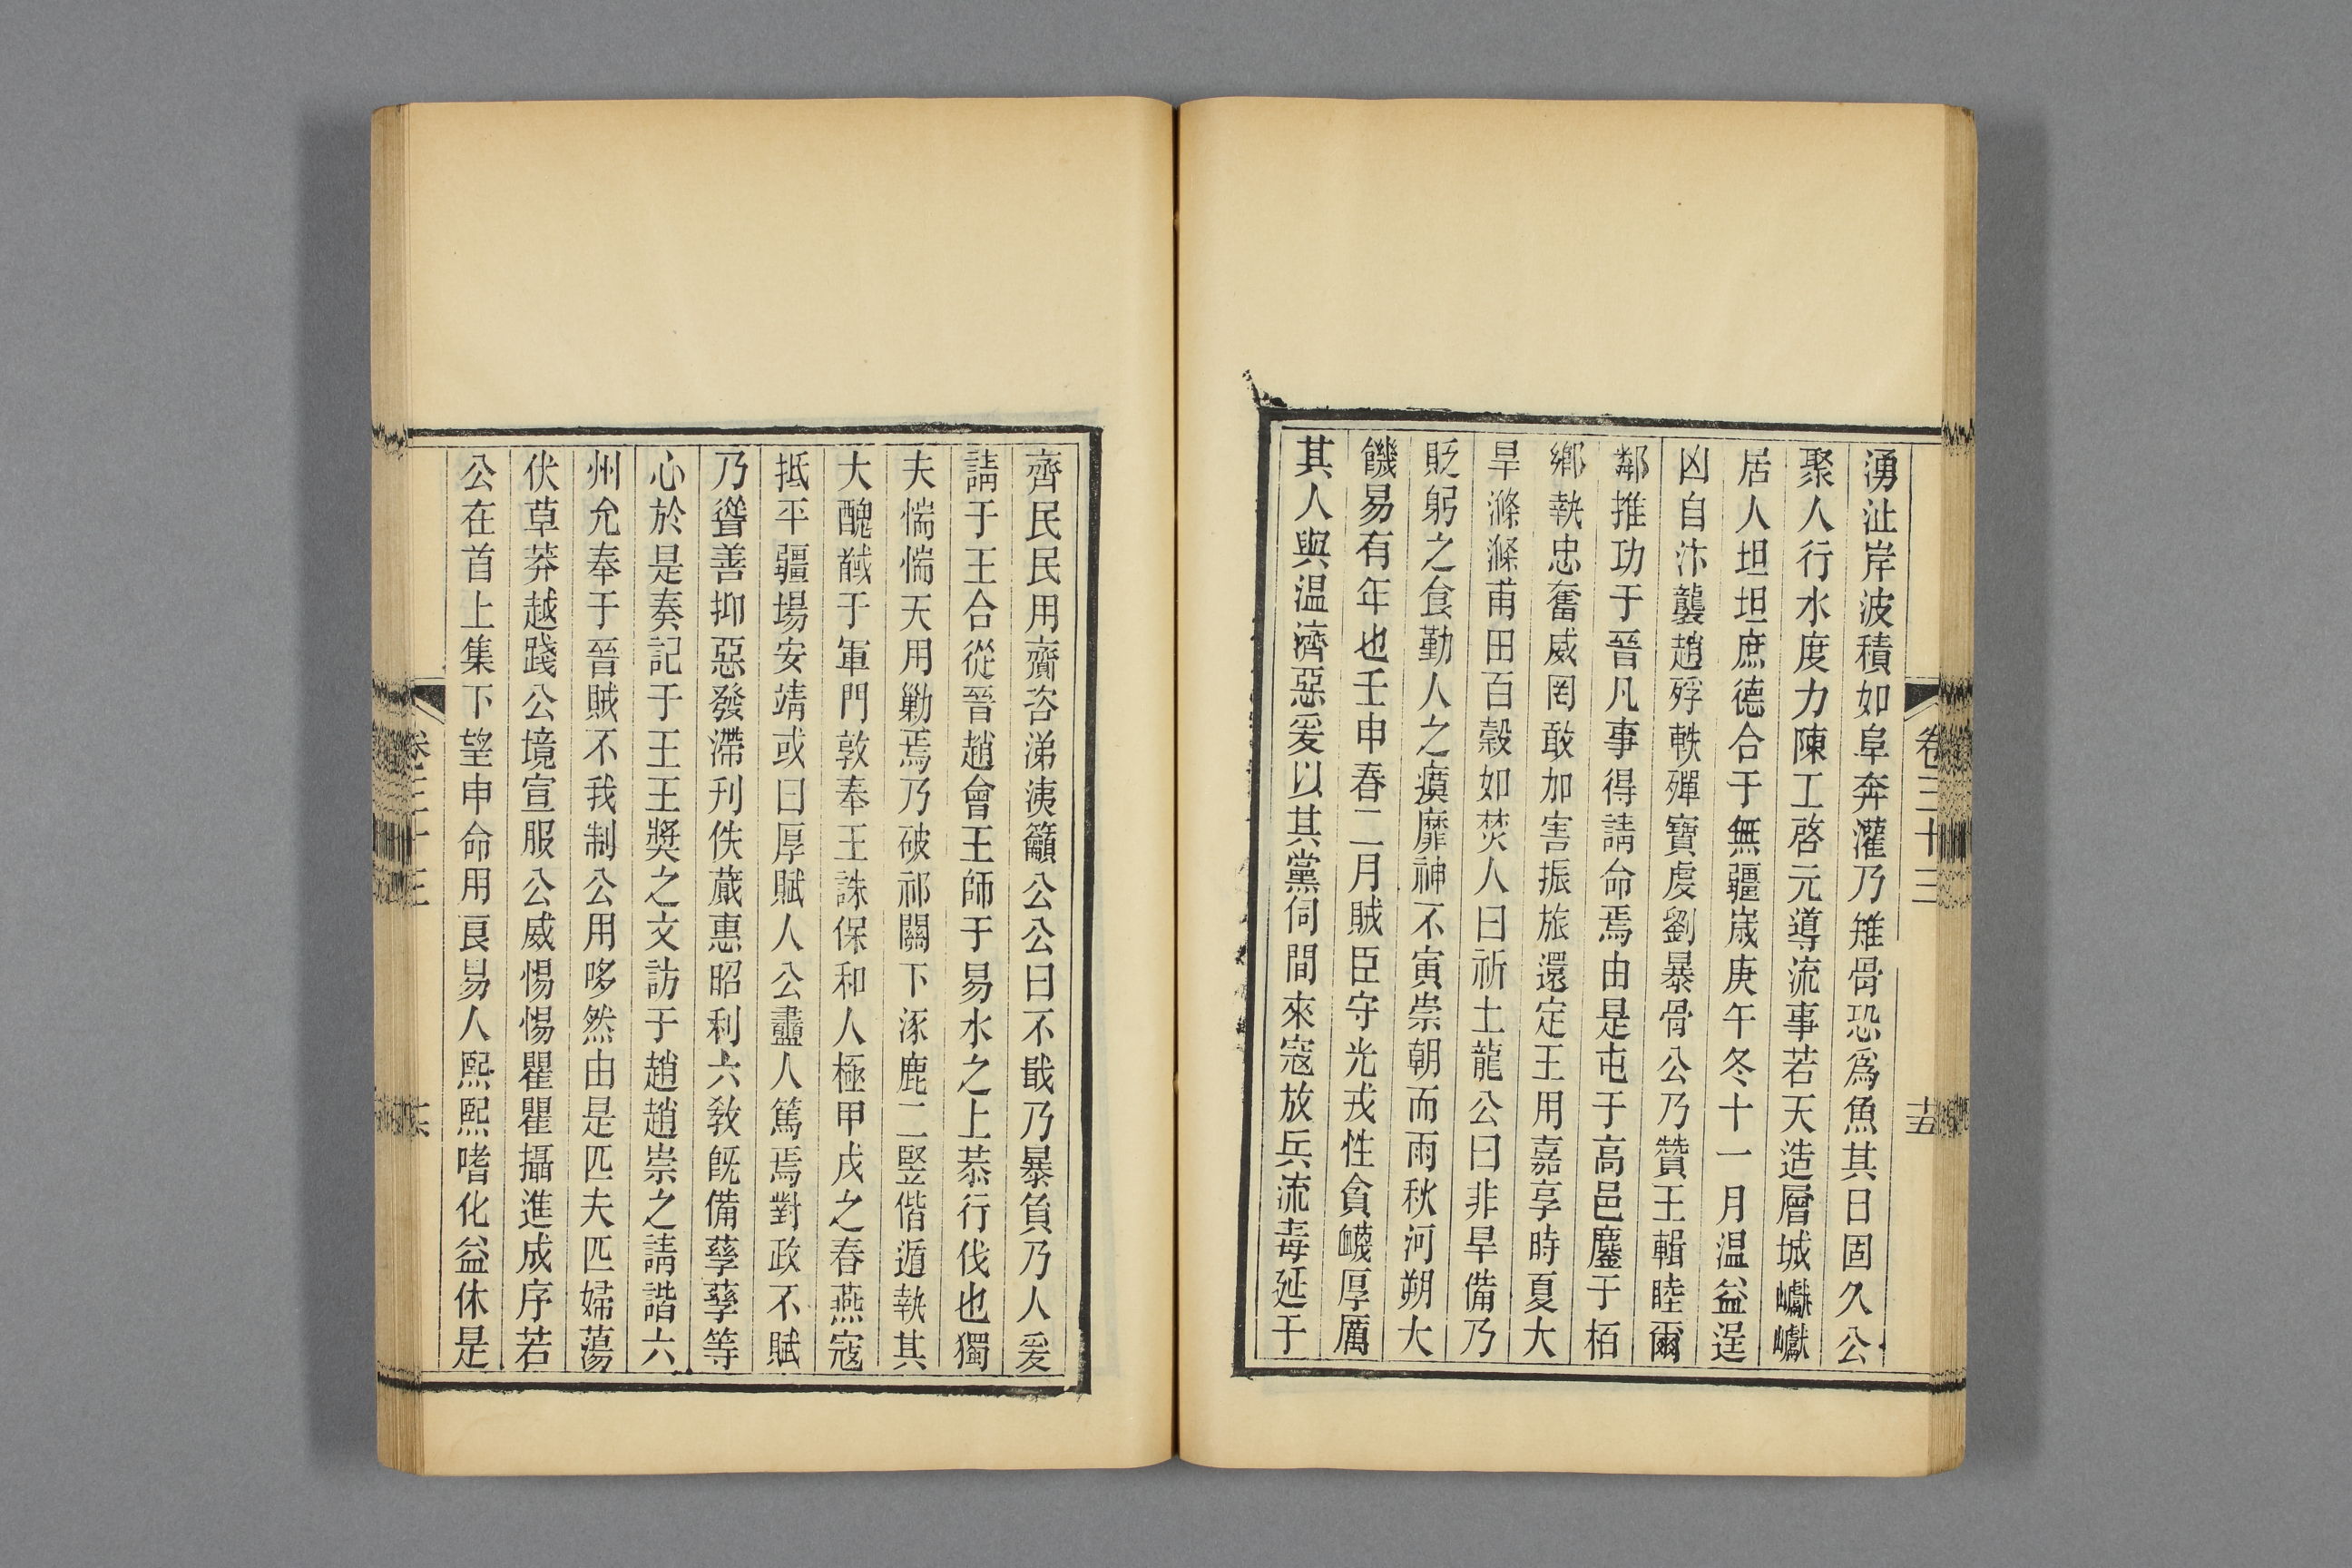 卷三十三
十五
湧沚岸波積如阜奔灌乃雉骨恐爲魚其日固久公
聚人行水度力陳工啓元導流事若天造層城巘巘
居人坦坦庶德合于無疆歲庚午冬十一月溫益逞
凶自汴襲趙殍軼殫寶虔劉暴骨公乃贊王輯睦爾
鄰推功于晉凡事得請命焉由是屯于高邑鏖于栢
鄉執忠奮威罔敢加害振旅還定王用嘉享時夏大
旱滌滌甫田百穀如焚人曰祈土龍公曰非旱備乃
貶躬之食勤人之瘼靡神不寅崇朝而雨秋河朔大
饑易有年也壬申春二月賊臣守光戎性貪衊厚厲
其人與温濟惡爰以其黨伺間來寇放兵流毒延于
齊民民用齎咨涕洟籲公公曰不戢乃暴負乃人爰
請于王合從晉趙會王師于易水之上恭行伐也獨
夫惴惴天用勦焉乃破祁關下涿鹿二竪偕遁執其
大醜馘于軍門敦奉王誅保和人極甲戌之春燕寇
抵平疆場安靖或曰厚賦人公盡人篤焉對政不賦
乃聳善抑惡發滯刋佚蕆惠昭利六敎旣備孽孽等
心於是奏記于王王獎之文訪于趙趙崇之請諧六
州允奉于晉賊不我制公用哆然由是匹夫匹婦蕩
伏草莽越踐公境宣服公威惕惕瞿瞿攝進成序若
公在首上集下望申命用良易人熙熙嗜化益休是
卷三十三
十六